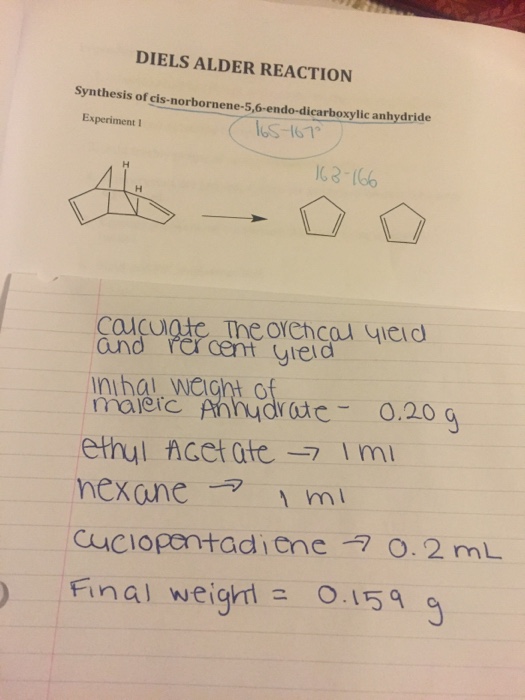 DIELS ALDER REACTION
Synthesis of cis-norbornene-5,6-endo-dicarboxylic anhydride
Experiment 1
165-167°
163-166
H
H
calculate Theoretical yield
and Percent yield
Inihal weight of
maleic Anhydrate - 0.20 g
ethyl Acetate → 1 ml
hexane → 1 ml
cuclopentadiene → 0.2 mL
Final weight = 0.159 g